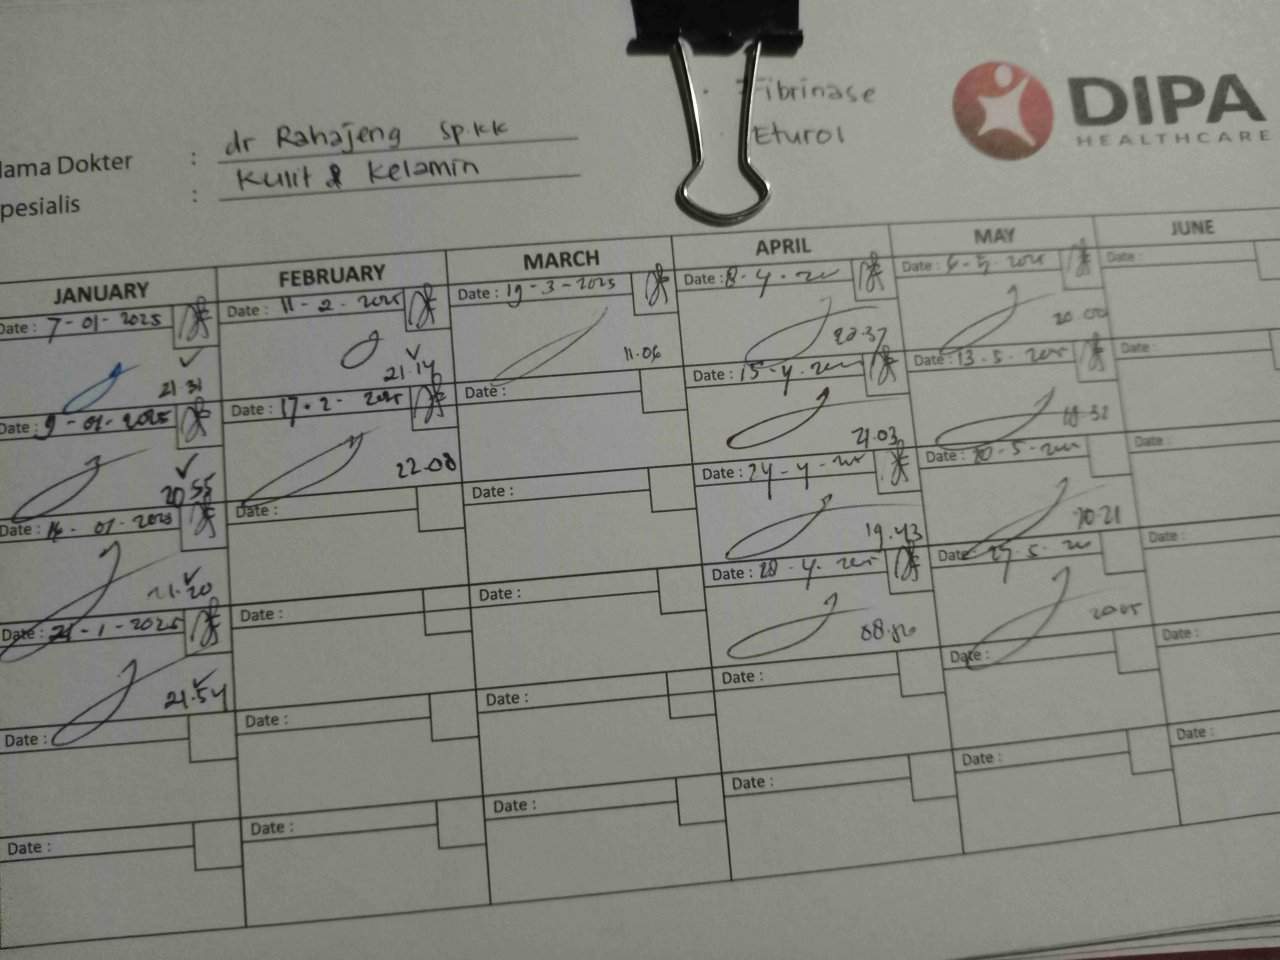 Fibrinase
Eturol
DIPA
HEALTHCARE
ama Dokter : dr Rahajeng Sp.KK
pesialis : Kulit & Kelamin
JANUARY FEBRUARY MARCH APRIL MAY JUNE
Date : 7-01-2025 Date : 11-2-2025 Date : 19-3-2025 Date : 8-4- Date : 6-5-2025 Date :
21 31 21.14 11.06 20.37 20.00
Date : 9-01-2025 Date : 17-2-2025 Date : Date : 15-4- Date : 13-5- Date :
20 55 22.08 21.03 18.32
Date : 14-01-2025 Date : Date : Date : 24-4- Date : 20-5- Date :
21.20 19.43 20.21
Date : 21-1-2025 Date : Date : Date : 28-4- Date : 27-5- Date :
21.54 20.05
Date : Date : Date : Date : Date : Date :
Date : Date : Date : Date : Date : Date :